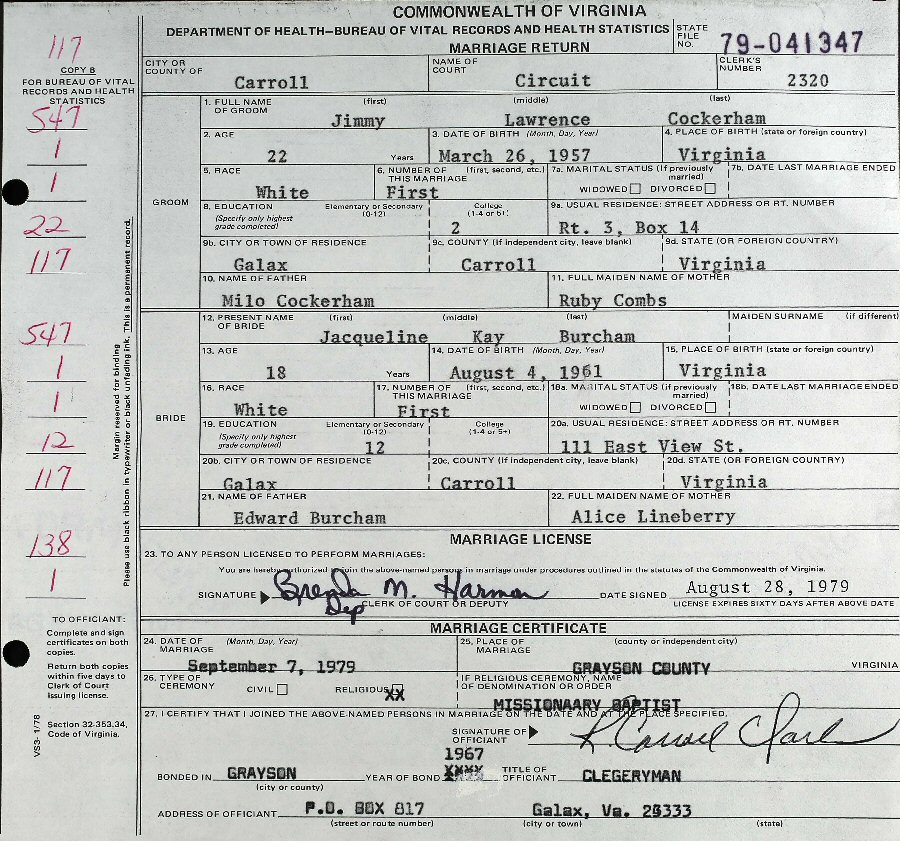 COMMONWEALTH OF VIRGINIA
DEPARTMENT OF HEALTH—BUREAU OF VITAL RECORDS AND HEALTH STATISTICS
MARRIAGE RETURN
STATE FILE NO. 79-041347
117
COPY B
FOR BUREAU OF VITAL
RECORDS AND HEALTH
STATISTICS
CITY OR COUNTY OF Carroll NAME OF COURT Circuit CLERK'S NUMBER 2320
547
1
1
22
117
547
1
1
12
117
138
1
GROOM
1. FULL NAME OF GROOM (first) (middle) (last)
Jimmy Lawrence Cockerham
2. AGE 3. DATE OF BIRTH (Month, Day, Year) 4. PLACE OF BIRTH (state or foreign country)
22 Years March 26, 1957 Virginia
5. RACE 6. NUMBER OF THIS MARRIAGE (first, second, etc.) 7a. MARITAL STATUS (If previously married) 7b. DATE LAST MARRIAGE ENDED
White First WIDOWED DIVORCED
8. EDUCATION (Specify only highest grade completed) Elementary or Secondary (0-12) College (1-4 or 5+) 9a. USUAL RESIDENCE: STREET ADDRESS OR RT. NUMBER
2 Rt. 3, Box 14
9b. CITY OR TOWN OF RESIDENCE 9c. COUNTY (If independent city, leave blank) 9d. STATE (OR FOREIGN COUNTRY)
Galax Carroll Virginia
10. NAME OF FATHER 11. FULL MAIDEN NAME OF MOTHER
Milo Cockerham Ruby Combs
BRIDE
12. PRESENT NAME OF BRIDE (first) (middle) (last) MAIDEN SURNAME (if different)
Jacqueline Kay Burcham
13. AGE 14. DATE OF BIRTH (Month, Day, Year) 15. PLACE OF BIRTH (state or foreign country)
18 Years August 4, 1961 Virginia
16. RACE 17. NUMBER OF THIS MARRIAGE (first, second, etc.) 18a. MARITAL STATUS (if previously married) 18b. DATE LAST MARRIAGE ENDED
White First WIDOWED DIVORCED
19. EDUCATION (Specify only highest grade completed) Elementary or Secondary (0-12) College (1-4 or 5+) 20a. USUAL RESIDENCE: STREET ADDRESS OR RT. NUMBER
12 111 East View St.
20b. CITY OR TOWN OF RESIDENCE 20c. COUNTY (If independent city, leave blank) 20d. STATE (OR FOREIGN COUNTRY)
Galax Carroll Virginia
21. NAME OF FATHER 22. FULL MAIDEN NAME OF MOTHER
Edward Burcham Alice Lineberry
Margin reserved for binding
Please use black ribbon in typewriter or black unfading ink. This is a permanent record.
MARRIAGE LICENSE
23. TO ANY PERSON LICENSED TO PERFORM MARRIAGES:
You are hereby authorized to join the above-named persons in marriage under procedures outlined in the statutes of the Commonwealth of Virginia.
SIGNATURE Brenda M. Harmon DATE SIGNED August 28, 1979
Dep CLERK OF COURT OR DEPUTY LICENSE EXPIRES SIXTY DAYS AFTER ABOVE DATE
TO OFFICIAL:
Complete and sign
certificates on both
copies.
Return both copies
within five days to
Clerk of Court
issuing license.
Section 32-353.34,
Code of Virginia.
VS3- 1/78
MARRIAGE CERTIFICATE
24. DATE OF MARRIAGE (Month, Day, Year) 25. PLACE OF MARRIAGE (county or independent city)
September 7, 1979 GRAYSON COUNTY VIRGINIA
26. TYPE OF CEREMONY CIVIL RELIGIOUS XX IF RELIGIOUS CEREMONY, NAME OF DENOMINATION OR ORDER
MISSIONAARY BAPTIST
27. I CERTIFY THAT I JOINED THE ABOVE-NAMED PERSONS IN MARRIAGE ON THE DATE AND AT THE PLACE SPECIFIED.
SIGNATURE OF OFFICIANT K. Carroll Clark
1967
BONDED IN GRAYSON YEAR OF BOND XXXX TITLE OF OFFICIANT CLEGERYMAN
(city or county)
ADDRESS OF OFFICIANT P.O. BOX 817 Galax, Va. 24333
(street or route number) (city or town) (state)